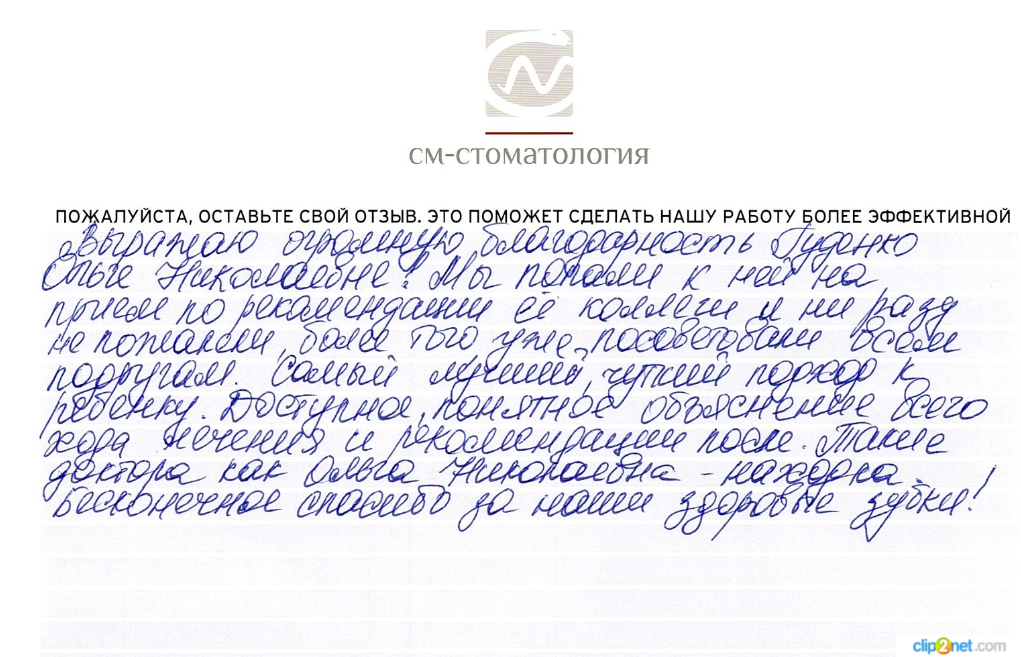 СМ-СТОМАТОЛОГИЯ
ПОЖАЛУЙСТА, ОСТАВЬТЕ СВОЙ ОТЗЫВ. ЭТО ПОМОЖЕТ СДЕЛАТЬ НАШУ РАБОТУ БОЛЕЕ ЭФФЕКТИВНОЙ
Выражаю огромную благодарность Гуденко
Ольге Николаевне! Мы попали к ней на
прием по рекомендации её коллеги и ни разу
не пожалели, более того уже посоветовали всем
подругам. Самый лучший, чуткий подход к
ребенку. Доступное, понятное объяснение всего
хода лечения и рекомендации после. Такие
доктора как Ольга Николаевна - находка.
Бесконечное спасибо за наши здоровые зубки!
clip2net.com